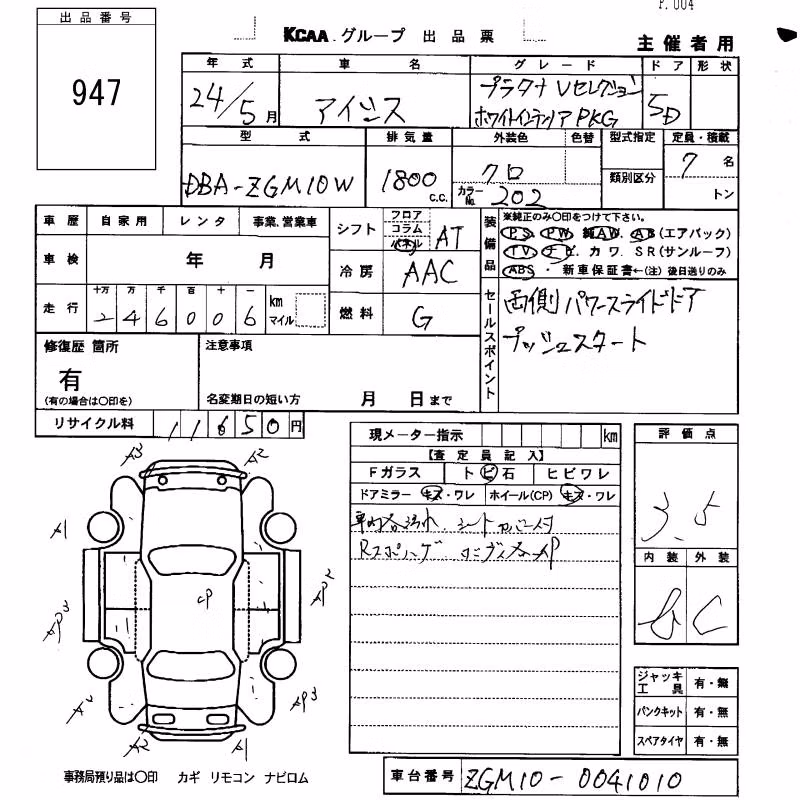 P.004
出品番号
947
KCAA グループ 出品票
主催者用
年式 車名 グレード ドア 形状
24/5月 アイシス プラタナ Vセレクション
ホワイトインテリア PKG 5D
型式 排気量 外装色 色替 型式指定 定員・積載
DBA-ZGM10W 1800 c.c. クロ 類別区分 7名
カラーNo. 202 トン
車歴 自家用 レンタ 事業、営業車
シフト フロア コラム パネル AT
装備品 ※純正のみ〇印をつけて下さい。
PS・PW 純AW. AB(エアバック)
TV・ナビ. カワ. SR(サンルーフ)
ABS・新車保証書←(注)後日送りのみ
車検 年 月
冷房 AAC
走行 十万 万 千 百 十 一
246006 km マイル
燃料 G
セールスポイント 両側パワースライドドア
プッシュスタート
修復歴 箇所 注意事項
有
(有の場合は〇印を) 名変期日の短い方 月 日まで
リサイクル料 11650円
現メーター指示 km
【査定員記入】
Fガラス トビ石 ヒビワレ
ドアミラー キズ・ワレ ホイール(CP) キズ・ワレ
車内各汚れ. シートカバー付
Rスポイラーゲ
評価点
3.5
内装 外装
B C
A3 A2
A1
AP2
AP3
CP
A2
AP3
A2 A1
ジャッキ工具 有・無
パンクキット 有・無
スペアタイヤ 有・無
事務局預り品は〇印 カギ リモコン ナビロム
車台番号 ZGM10-0041010